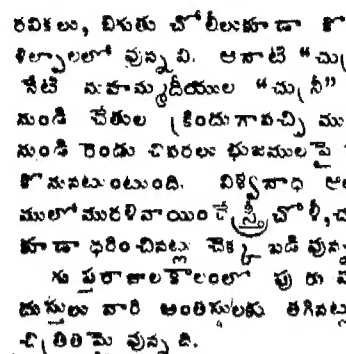 రవికలు, బిగుతు చోలీలుకూడా కొ
శిల్పాలలో వున్నవి. ఆనాటి "చు(
నేటి మహమ్మదీయుల "చున్రీ"
నుండి చేతుల క్రిందుగావచ్చి ము
నుండి రెండు చివరలు భుజములపై
కొనుపటుంటుంది. విశ్వనాధ ఆల
ములో మురళివాయించే స్త్రీ చోళీ,
కూడా ధరించినట్లు చెక్కబడి వున్న
గుప్తరాజులకాలంలో పురుష
దుస్తులు వారి అంతస్తులకు తగినట్లు
చిత్రితమై వున్నది.